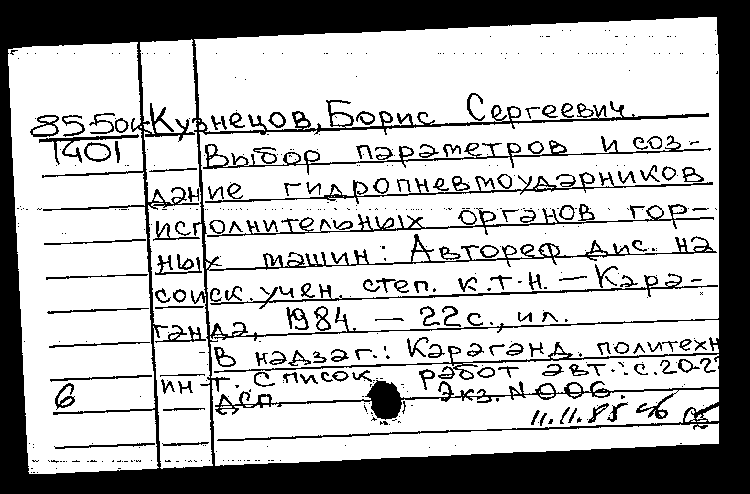 85-5ок Кузнецов, Борис Сергеевич.
1401 Выбор параметров и соз-
дание гидропневмоударников
исполнительных органов гор-
ных машин: Автореф дис. на
соиск. учен. степ. к.т.н. — Кара-
ганда, 1984. — 22 с., ил.
В надзаг.: Караганд. политехн
ин-т. Список работ авт.: с.20-2
6 ДСП. Экз. N 006.
11.11.85